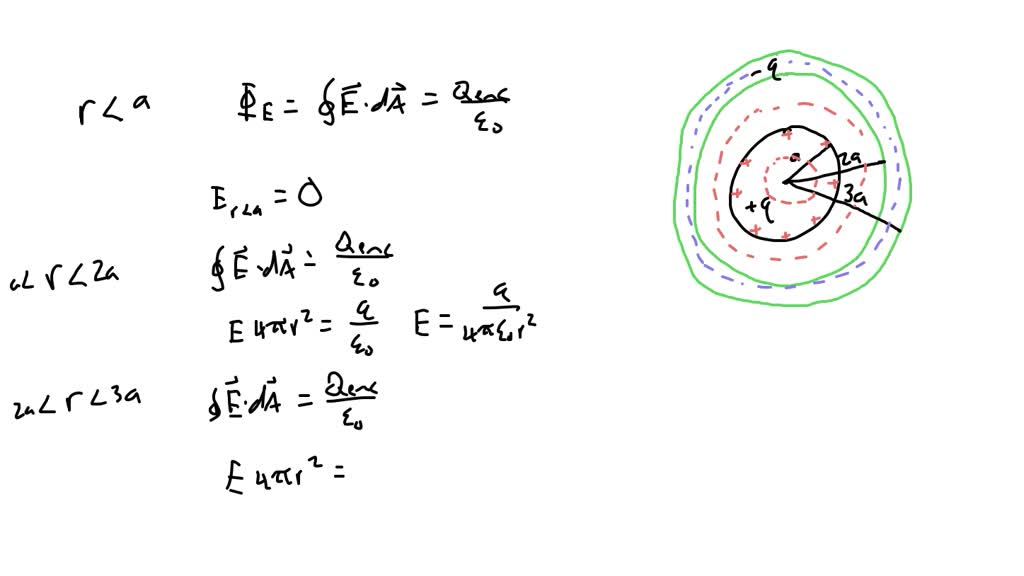 r < a    Φ_E = ∮ E⃗ · dA⃗ = Qenc/ε₀
E_{r<a} = 0
a< r < 2a    ∮ E⃗ · dA⃗ = Qenc/ε₀
E 4πr² = q/ε₀    E = q/4πε₀r²
2a < r < 3a    ∮ E⃗ · dA⃗ = Qenc/ε₀
E 4πr² =
-q
a
2a
3a
+q